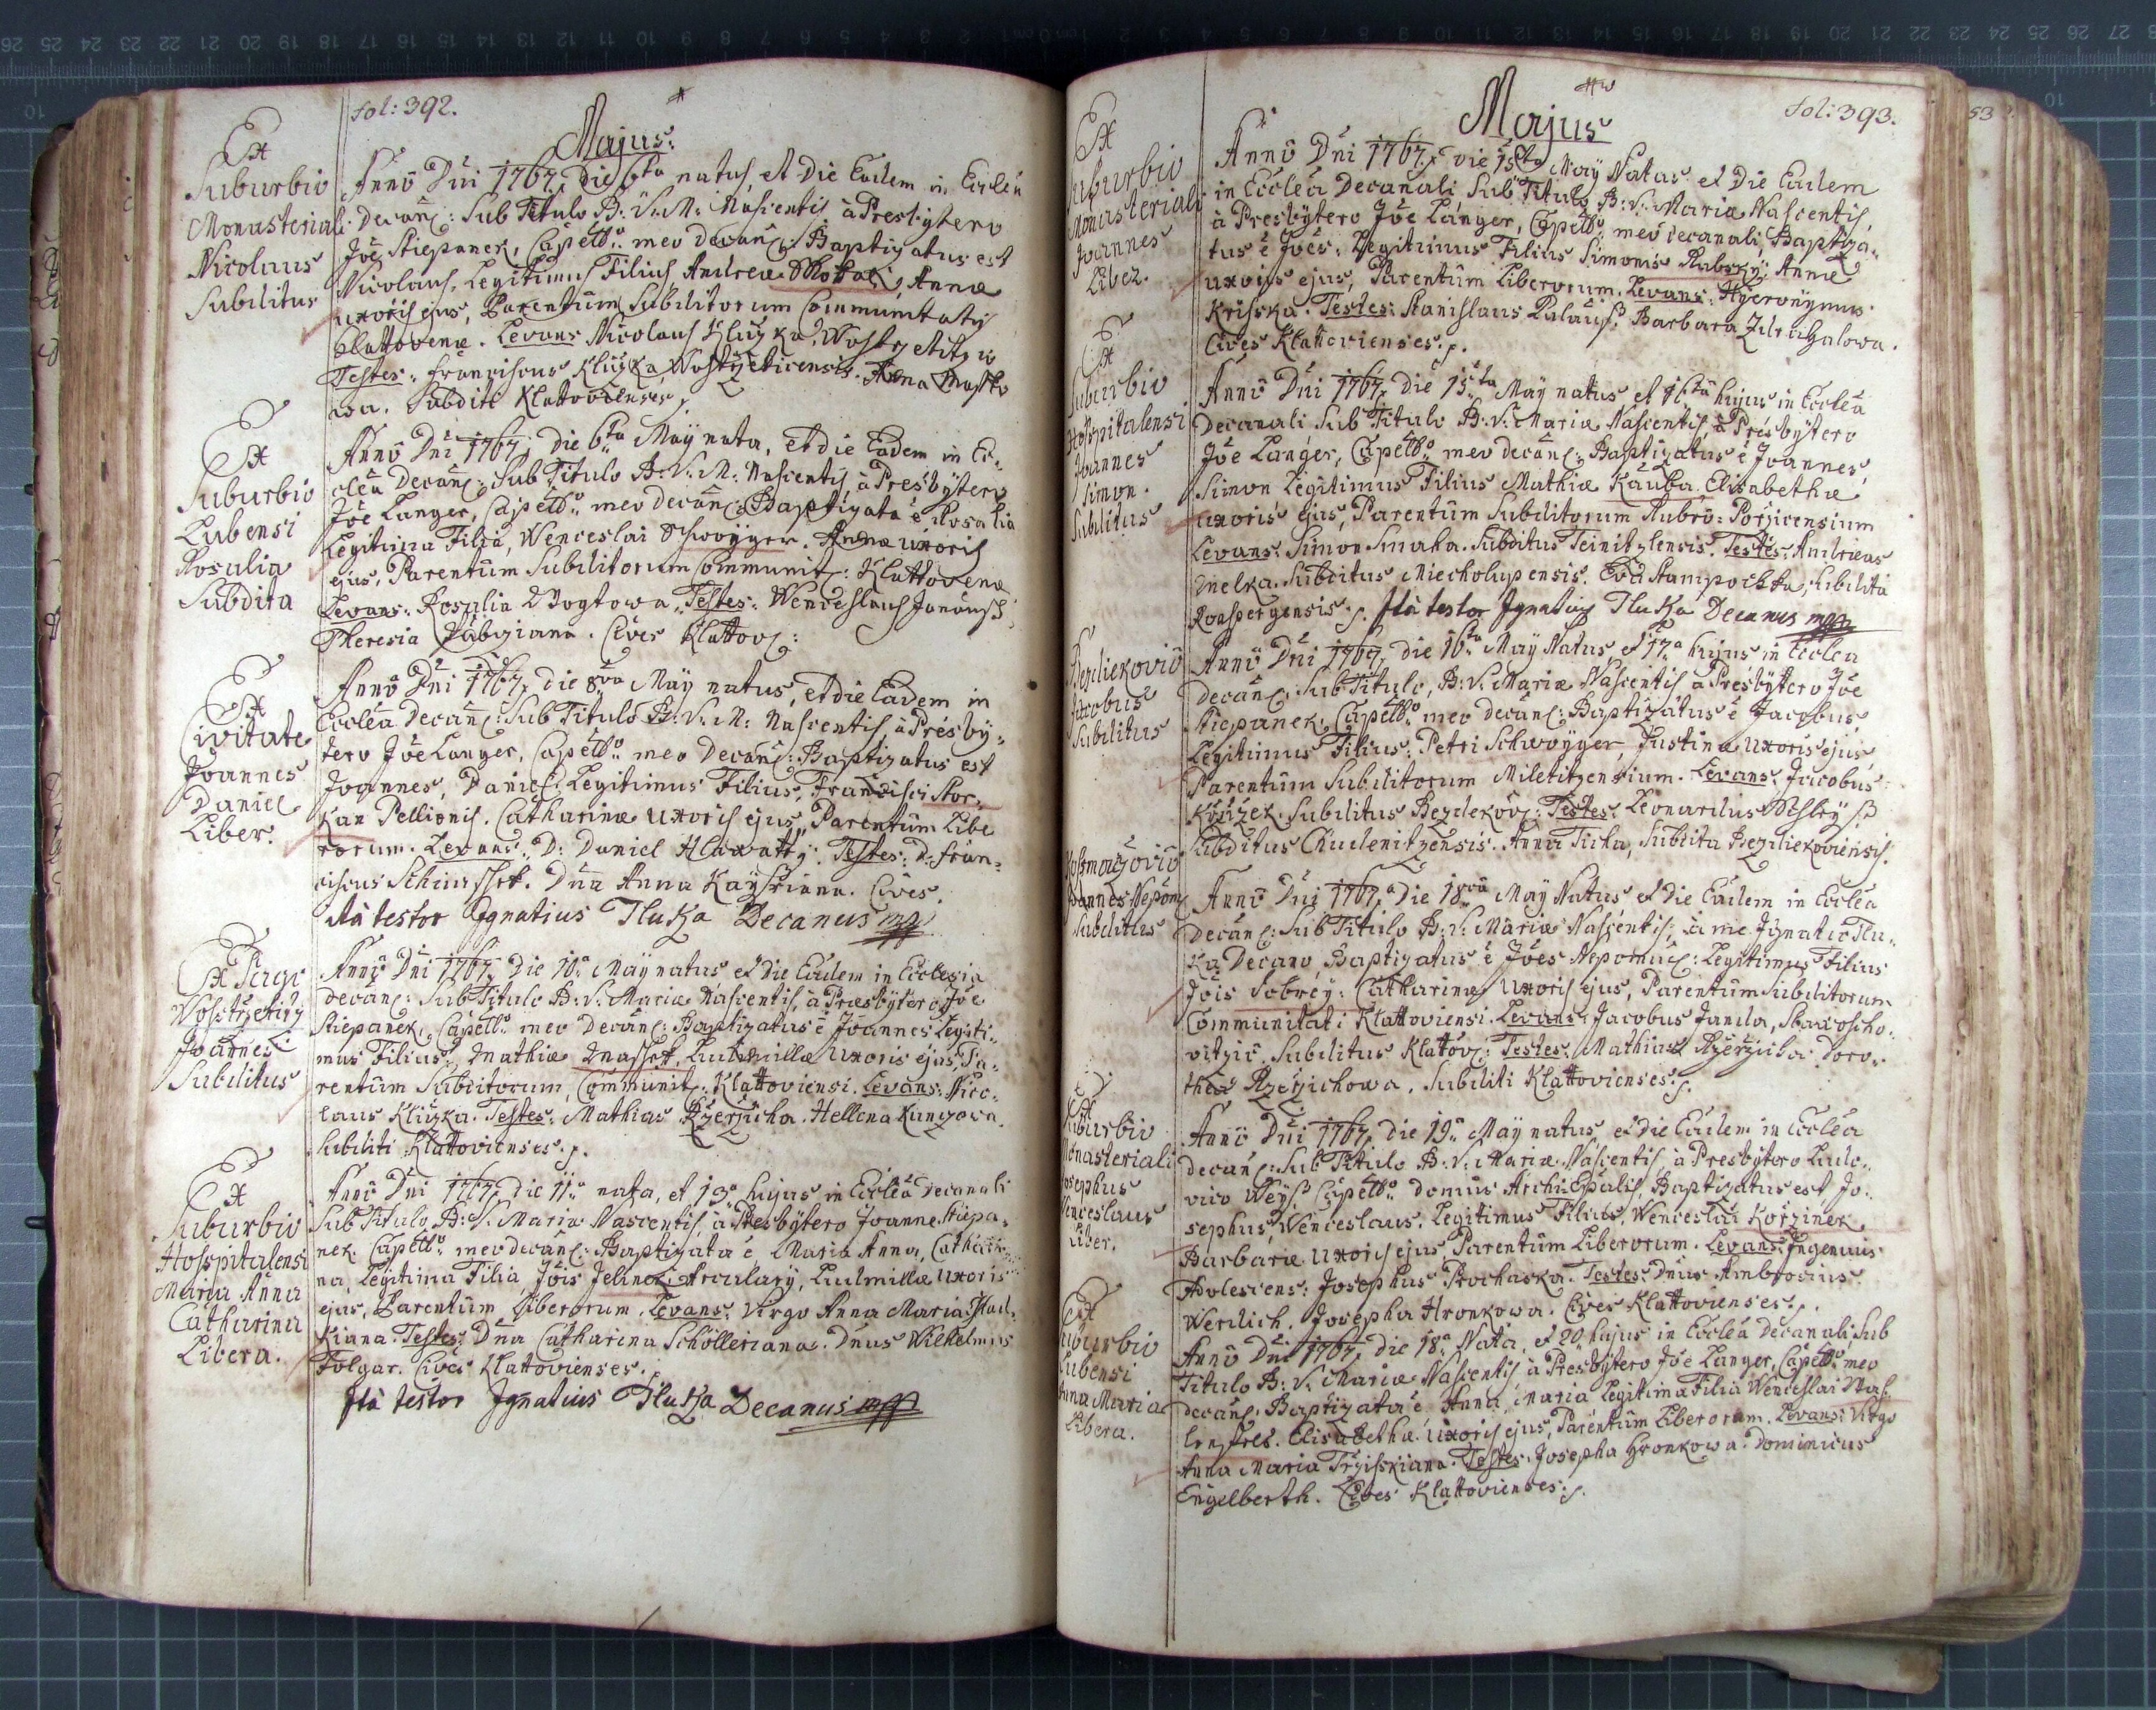 fol: 392.
Majus:
Ex
Suburbio
Monasteriali
Nicolaus
Subditus
Anno Dni 1767, Die 6ta natus, et Die Eadem in Eccleã
Decanl: Sub Titulo B: V: M: Nascentis à Presbytero
Joe Stiepanek, Capelło meo Decanl: Baptizatus est
Nicolaus, Legitimus Filius Andreæ Annæ
uxoris ejus, Parentum Subditorum Communitatis
Clattovenæ. Levans Nicolaus Kliczka,
Testes: Franciscus Kliczka, Anna
wa. Subditi Klattovienses.
Ex
Suburbio
Lubensi
Rosalia
Subdita
Anno Dni 1767, Die 6ta Maÿ nata, et die Eadem in Ec-
cleã Decanl: Sub Titulo B: V: M: Nascentis à Presbÿtero
Joe Langer, Capelło meo Decanl: Baptizata è Rosalia
Legitima Filia, Wenceslai Schwoÿger. Annæ uxoris
ejus, Parentum Subditorum Communit: Klattovenæ
Levans: Rosalia Vogtowa. Testes: Wenceslaus Janausch
Theresia Cives Klattov:
Ex
Civitate
Joannes
Daniel
Liber.
Anno Dni 1767, die 8va Maÿ natus, et die Eadem in
Eccleã Decanl: Sub Titulo B: V: M: Nascentis, à Presbÿ-
tero Joe Langer, Capelło meo Decanl: Baptizatus est
Joannes, Daniel, Legitimus Filius, Francisci Stor-
kan Pellionis. Catharinæ uxoris ejus, Parentum Libe
rorum. Levans: D: Daniel Hlawattÿ. Testes: D: Fran-
ciscus Dña Anna Kaysriana. Cives.
Ità testor Ignatius Tluka Decanus mp
Ex Pago
Joannes
Subditus
Anno Dni 1767, Die 10a Maÿ natus et die Eadem in Ecclesia
Decanl: Sub Titulo B: V: Mariæ Nascentis, à Præsbÿtero Joe
Stiepanek, Capelło meo Decanl: Baptizatus è Joannes Legiti-
mus Filius, Mathiæ Ludmillæ uxoris ejus, Pa-
rentum Subditorum Communit: Klattoviensi. Levans: Nico-
laus Kliczka. Testes: Mathias Rzerzicha. Hellena Kunzowa.
Subditi Klattovienses.
Ex
Suburbio
Hospitalensi
Maria Anna
Catharina
Libera.
Anno Dni 1767, die 11a nata, et 13a hujus in Eccleã Decanali
Sub Titulo B: V: Mariæ Nascentis, à Presbÿtero Joanne Stiepa-
nek, Capelło meo decanl: Baptizata è Maria Anna, Cathari-
na, Legitima Filia Jõis Jelinek Arcularÿ, Ludmillæ uxoris
ejus, Parentum Liberorum. Levans: Virgo Anna Maria
kiana. Testes: Dña Catharina Schölleriana. Dnus Wilhelmus
Folgar. Cives Klattovienses.
Ità testor Ignatius Tluka Decanus mp
Majus
fol: 393.
Ex
Suburbio
Monasteriali
Joannes
Liber.
Anno Dni 1767, die 15ta Maÿ Natus et Die Eadem
in Eccleã Decanali Sub Titulo B: V: Mariæ Nascentis,
à Presbÿtero Joe Langer, Capelło meo decanali, Baptiza-
tus è Joes, Legitimus Filius Simonis Rubskÿ, Annæ
uxoris ejus, Parentum Liberorum. Levans: Hÿeronÿmus
Krisska. Testes: Stanislaus Barbara
Cives Klattovienses.
Ex
Suburbio
Hospitalensi
Joannes
Simon.
Subditus
Anno Dni 1767, die 15ta Maÿ natus et 16ta hujus in Eccleã
Decanali Sub Titulo B: V: Mariæ Nascentis, à Presbÿtero
Joe Langer, Capelło meo decanl: Baptizatus è Joannes,
Simon Legitimus Filius Mathiæ Kauba. Elisabethæ
uxoris ejus, Parentum Subditorum Rubro-Porzicensium
Levans: Simon Smaha. Subditus Teinitzlensis. Testes: Andreas
Melka. Subditus Miecholupensis. Eva Subdita
Ronspergensis. Ità testor Ignatius Tluka Decanus mp
Bezdiekovio
Jacobus
Subditus
Anno Dni 1767, die 16ta Maÿ Natus et 17a hujus in Eccleã
decanl: Sub Titulo, B: V: Mariæ Nascentis à Presbÿtero Joe
Stiepanek, Capelło meo decanl: Baptizatus è Jacobus,
Legitimus Filius, Petri Schwoÿger, Justinæ uxoris ejus,
Parentum Subditorum Miletitzensium. Levans: Jacobus
Subditus Bezdiekov: Testes: Leonardus
Subditus Chudenitzensis. Anna Ticha, Subdita Bezdiekoviensis.
Joannes Nepom:
Subditus
Anno Dni 1767, Die 18va Maÿ Natus et die Eadem in Eccleã
Decanl: Sub Titulo B: V: Mariæ Nascentis, à me Ignatio Tlu-
ka Decano, Baptizatus è Joes Nepomuc: Legitimus Filius
Jõis Sobreÿ: Catharinæ uxoris ejus, Parentum Subditorum
Communitati Klattoviensi. Levans: Jacobus Janda,
Subditus Klattov: Testes: Mathias Rzerzicha. Doro-
thea Rzerzichowa. Subditi Klattovienses.
Ex
Suburbio
Monasteriali
Josephus
Wenceslaus
Liber.
Anno Dni 1767, die 19a Maÿ natus, et die Eadem in Eccleã
decanl: Sub Titulo B: V: Mariæ Nascentis, à Presbÿtero Ludo-
vico Weÿs, Capelło Domus Archi-Epalis, Baptizatus est Jo-
sephus, Wenceslaus, Legitimus Filius, Wenceslai Korzinek,
Barbaræ uxoris ejus Parentum Liberorum. Levans: Ingenuus
Adolescens: Josephus Prochaska. Testes: Dnus Ambrosius
Werdich. Josepha Hronkowa. Cives Klattovienses.
Ex
Suburbio
Lubensi
Anna Maria
Libera.
Anno Dni 1767, die 18a Nata, et 20 hujus in Eccleã Decanali, Sub
Titulo B: V: Mariæ Nascentis à Presbÿtero Joe Langer, Capelło meo
decanl: Baptizata è Anna, Maria Legitima Filia Wenceslai
Elisabethæ uxoris ejus, Parentum Liberorum. Levans: Virgo
Anna Maria Testes: Josepha Hronkowa. Dominicus
Engelberth. Cives Klattovienses.